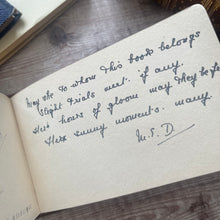 May she to whom this book belongs
slight trials meet if any.
Her hours of gloom may they be few
Her sunny moments. many.
M. S. D.